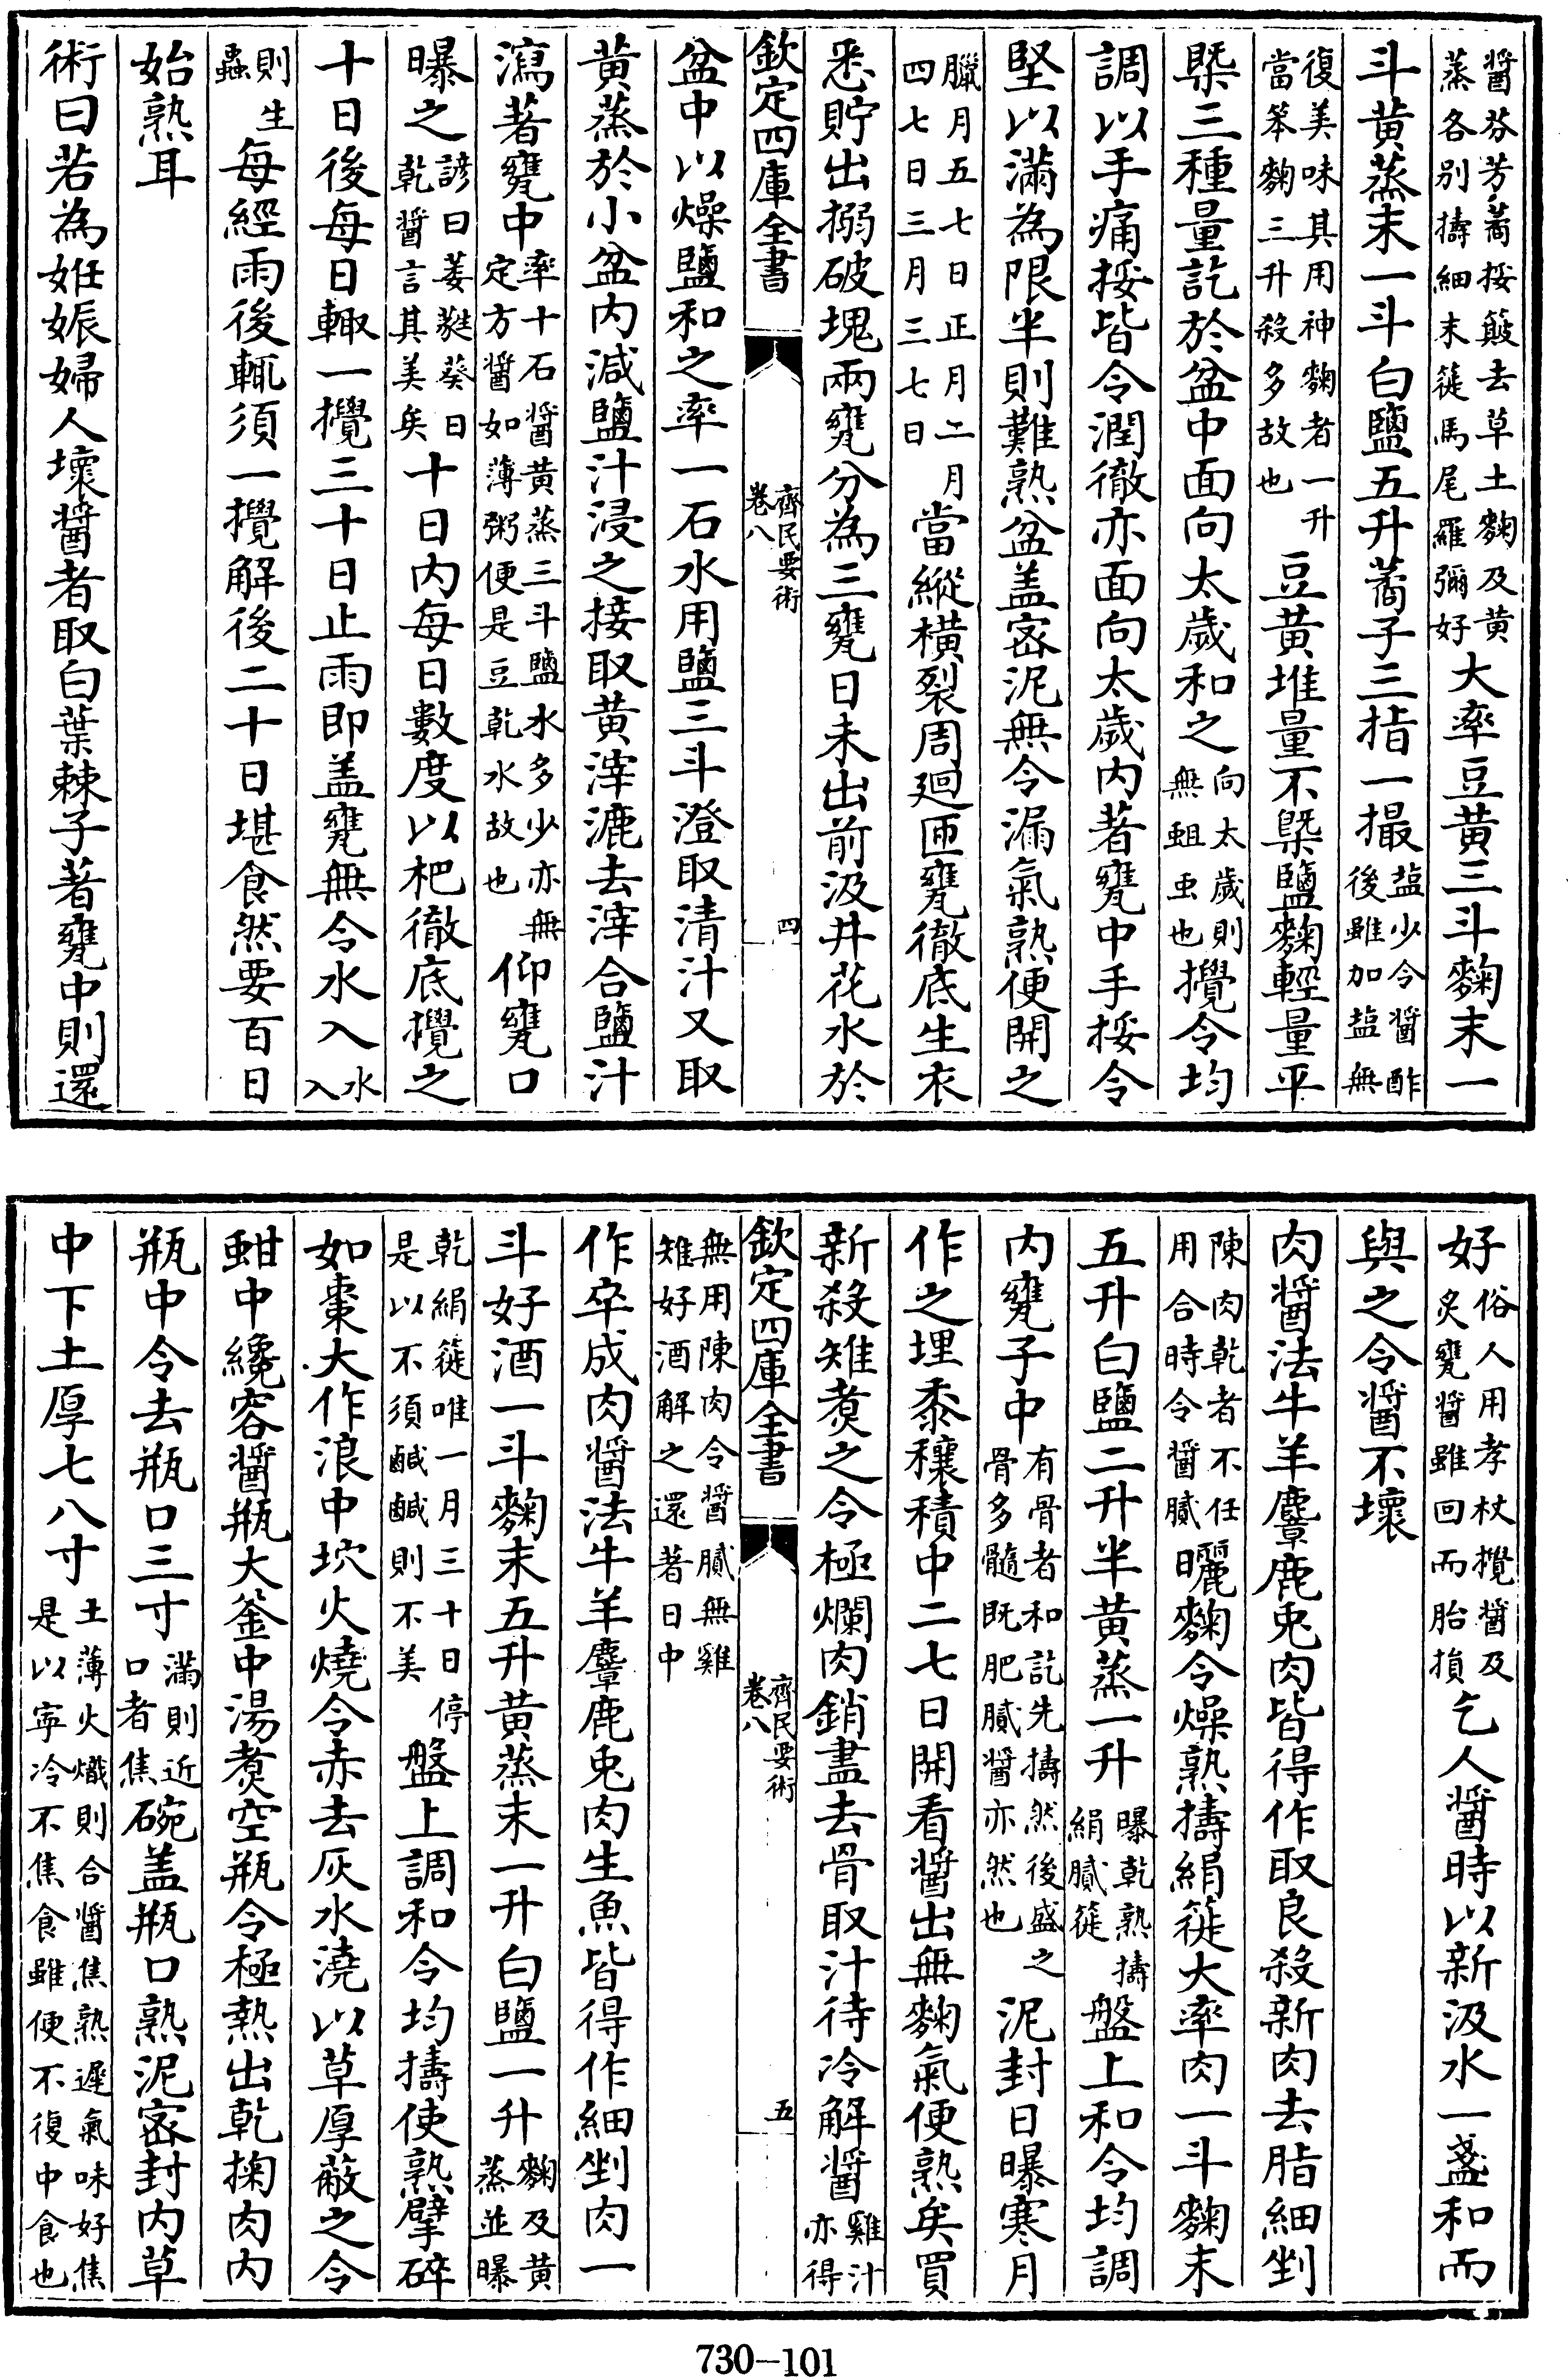 醬芬芳蕎挼簸去草土麴及黄
蒸各别擣細末簁馬尾羅彌好大率豆黄三斗麴末一
斗黄蒸末一斗白鹽五升蕎子三指一撮盐少令醬酢
後雖加盐無
復美味其用神麴者一升
當笨麴三升殺多故也豆黄堆量不槩鹽麴輕量平
槩三種量訖於盆中面向太歲和之向太歲則
無蛆虫也攪令均
調以手痛挼皆令潤徹亦面向太歲内著甕中手挼令
堅以滿為限半則難熟盆盖宻泥無令漏氣熟便開之
臘月五七日正月二月
四七日三月三七日當縱横裂周廻匝甕徹底生衣
悉貯出搦破塊兩甕分為三甕日未出前汲井花水於
欽定四庫全書
齊民要術
卷八
四
盆中以燥鹽和之率一石水用鹽三斗澄取清汁又取
黄蒸於小盆内減鹽汁浸之接取黄滓漉去滓合鹽汁
瀉著甕中率十石醬黄蒸三斗鹽水多少亦無
定方醬如薄粥便是豆乾水故也仰甕口
曝之諺曰萎蕤葵日
乾醬言其美矣十日内每日數度以杷徹底攪之
十日後每日輙一攪三十日止雨即盖甕無令水入水
入
則生
蟲每經雨後輒須一攪解後二十日堪食然要百日
始熟耳
術曰若為妊娠婦人壞醬者取白葉棘子著甕中則還
好俗人用孝杖攪醬及
炙甕醬雖回而胎損乞人醬時以新汲水一盞和而
與之令醬不壞
肉醬法牛羊麞鹿兎肉皆得作取良殺新肉去脂細剉
陳肉乾者不任
用合時令醬膩曬麴令燥熟擣絹簁大率肉一斗麴末
五升白鹽二升半黄蒸一升曝乾熟擣
絹膩簁盤上和令均調
内甕子中有骨者和訖先擣然後盛之
骨多髓既肥膩醬亦然也泥封日曝寒月
作之埋黍穰積中二七日開看醬出無麴氣便熟矣買
新殺雉煑之令極爛肉銷盡去骨取汁待冷解醬雞汁
亦得
欽定四庫全書
齊民要術
卷八
五
無用陳肉令醬膩無雞
雉好酒解之還著日中
作卒成肉醬法牛羊麞鹿兎肉生魚皆得作細剉肉一
斗好酒一斗麴末五升黄蒸末一升白鹽一升麴及黄
蒸並曝
乾絹簁唯一月三十日停
是以不須鹹鹹則不美盤上調和令均擣使熟擘碎
如棗大作浪中坎火燒令赤去灰水澆以草厚蔽之令
蚶中纔容醬瓶大釜中湯煑空瓶令極熱出乾掬肉内
瓶中令去瓶口三寸滿則近
口者焦碗盖瓶口熟泥宻封内草
中下土厚七八寸土薄火熾則合醬焦熟遲氣味好焦
是以寧冷不焦食雖便不復中食也
730-101